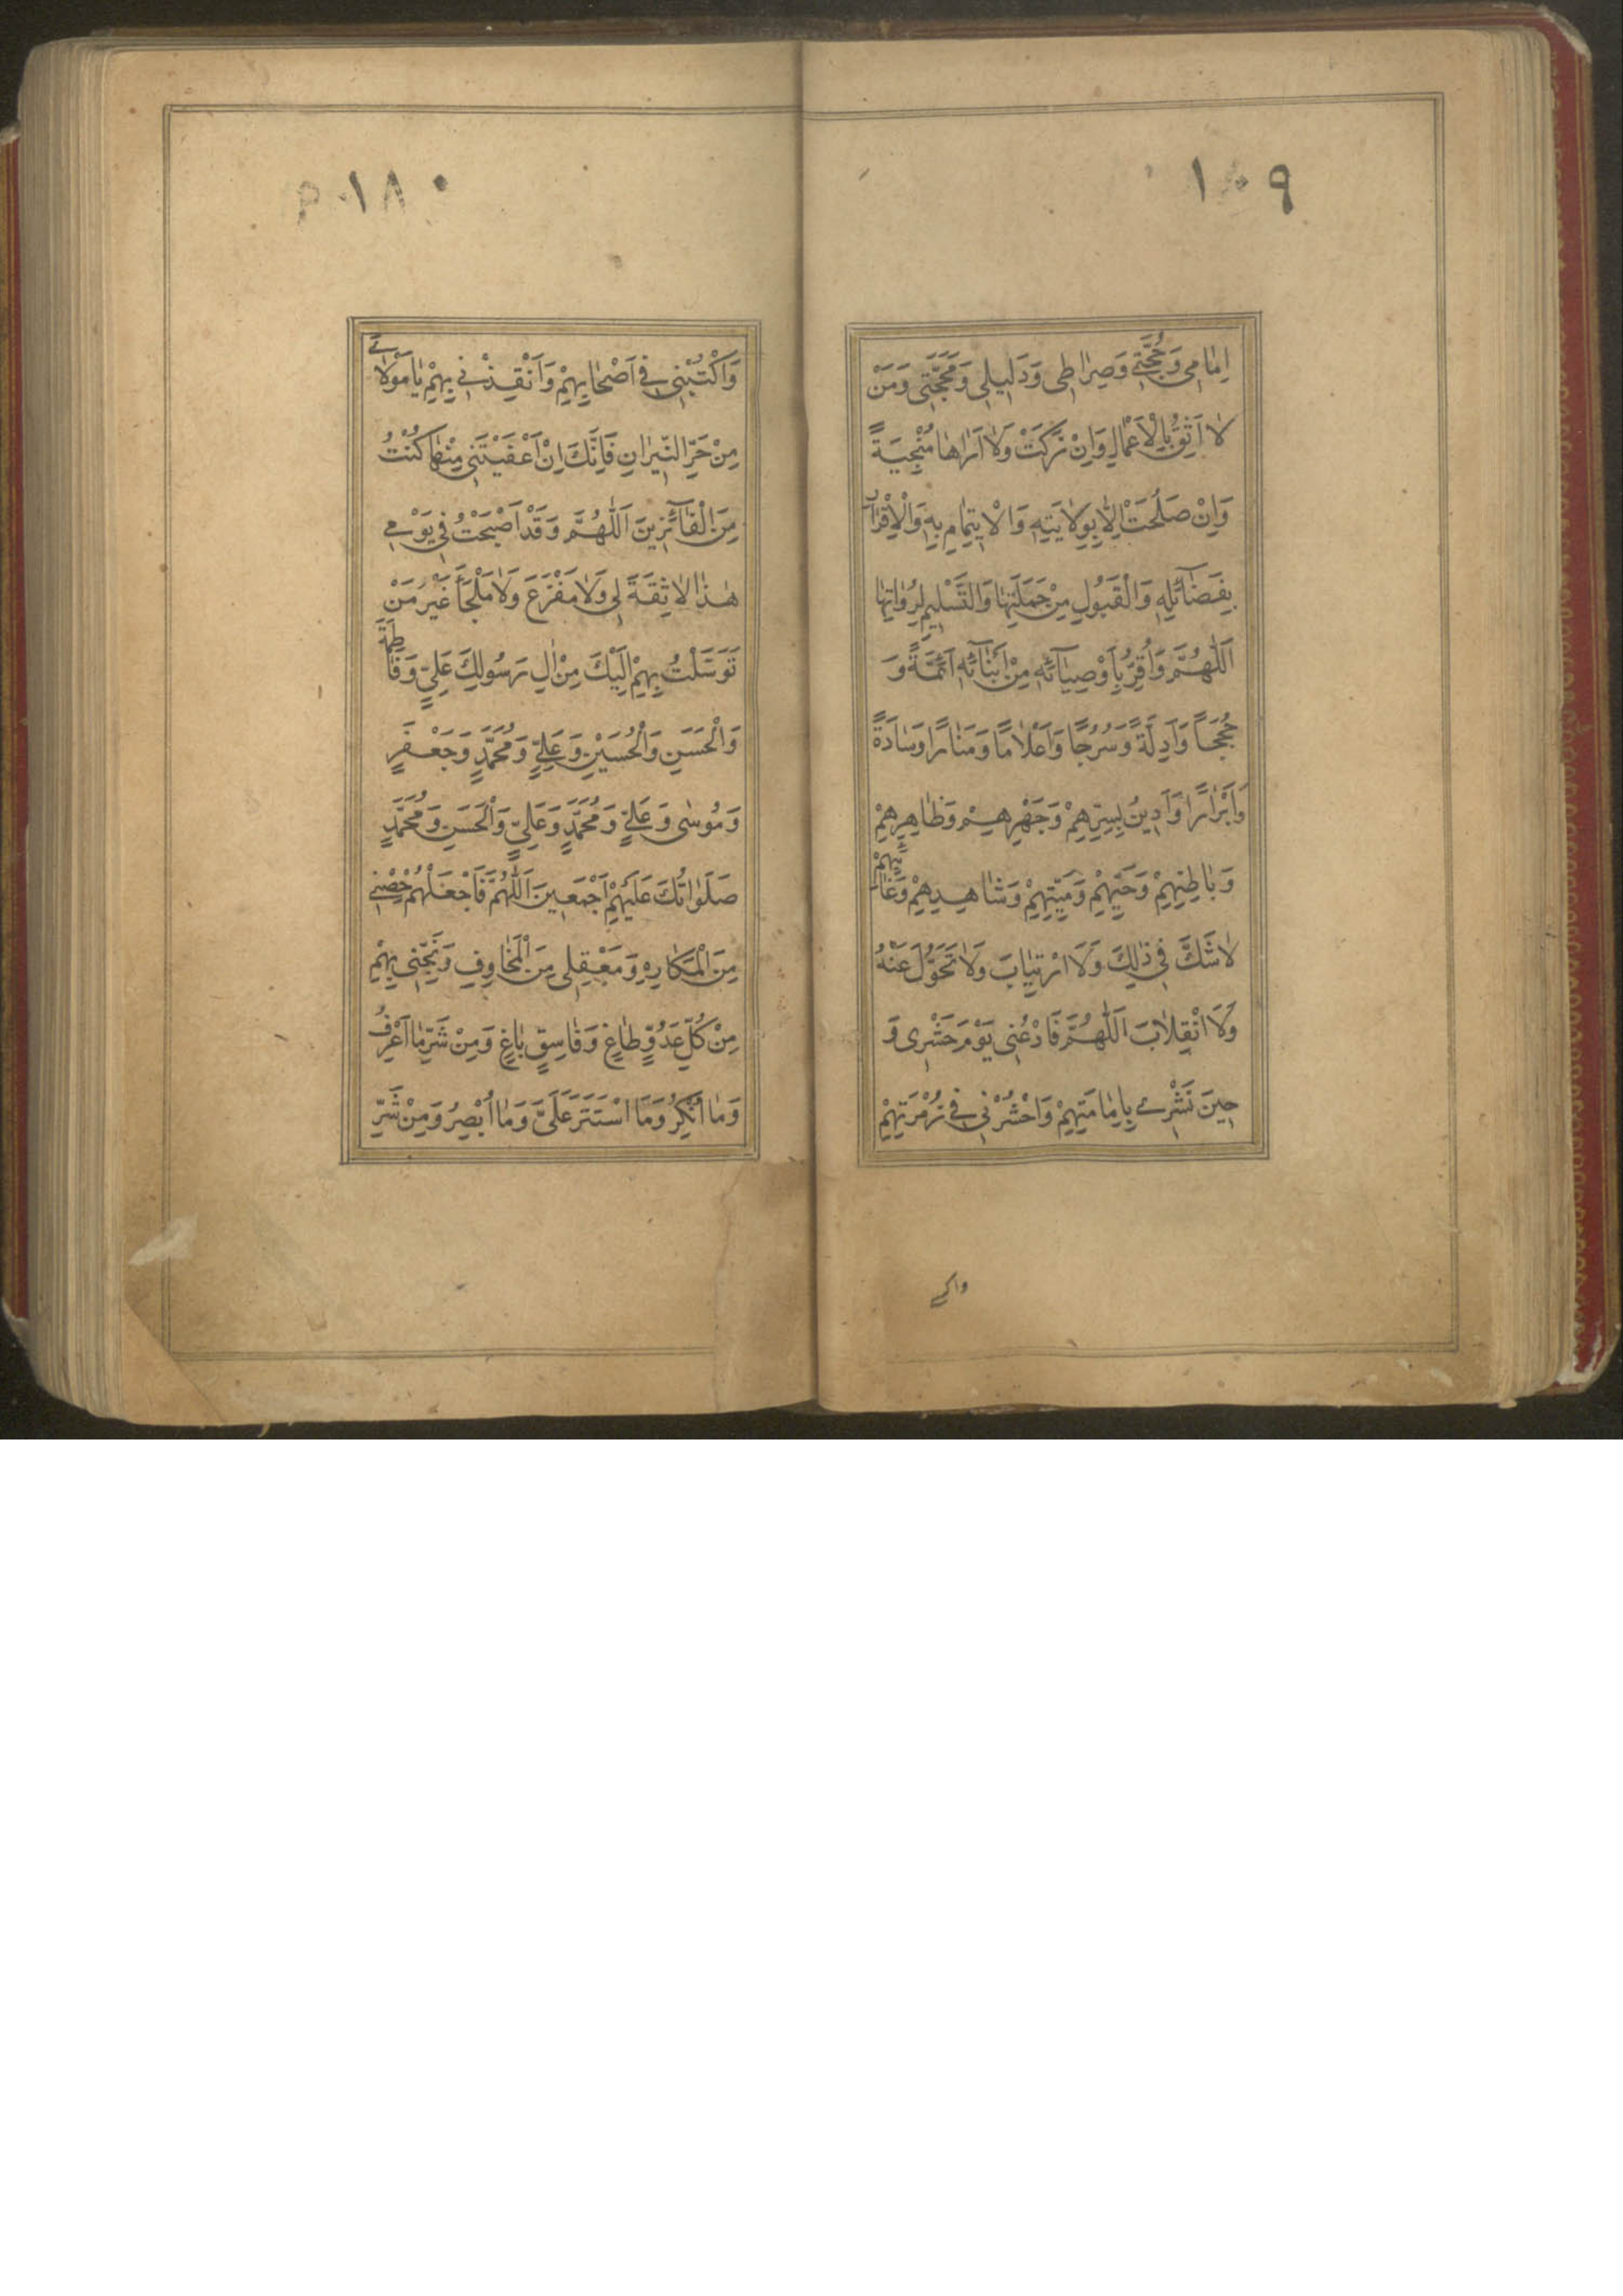 ١٠٩
اِمٰامِى وَحُجَّتِى وَصِرٰاطِى وَدَلِيلِى وَمَحَجَّتِى وَمَنْ
لٰا اَثِقُ بِالْاَعْمٰالِ وَاِنْ زَكَتْ وَلٰا اَرٰاهٰا مُنْجِيَةً
وَاِنْ صَلُحَتْ اِلّٰا بِوِلٰايَتِهِ وَالْاِيتِمٰامِ بِهِ وَالْاِقْرٰارِ
بِفَضٰآئِلِهِ وَالْقَبُولِ مِنْ حَمَلَتِهٰا وَالتَّسْلِيمِ لِرُوٰاتِهٰا
اَللّٰهُمَّ وَاُقِرُّ بِاَوْصِيٰآئِهِ مِنْ اَبْنٰآئِهِ اَئِمَّةً وَ
حُجَجًا وَاَدِلَّةً وَسُرُجًا وَاَعْلٰامًا وَمَنٰارًا وَسٰادَةً
وَاَبْرٰارًا وَاَدِينُ بِسِرِّهِمْ وَجَهْرِهِمْ وَظٰاهِرِهِمْ
وَبٰاطِنِهِمْ وَحَيِّهِمْ وَمَيِّتِهِمْ وَشٰاهِدِهِمْ وَغٰائِبِهِمْ
لٰا شَكَّ فِى ذٰلِكَ وَلَا ارْتِيٰابَ وَلٰا تَحَوُّلَ عَنْهُ
وَلَا انْقِلٰابَ اَللّٰهُمَّ فَادْعُنِى يَوْمَ حَشْرِى وَ
حِينَ نَشْرِى بِاِمٰامَتِهِمْ وَاحْشُرْنِى فِى زُمْرَتِهِمْ
واكـ
١٨٠
وَاكْتُبْنِى فِى اَصْحٰابِهِمْ وَاَنْقِذْنِى بِهِمْ يٰا مَوْلٰاىَ
مِنْ حَرِّ النِّيرٰانِ فَاِنَّكَ اِنْ اَعْفَيْتَنِى مِنْهٰا كُنْتُ
مِنَ الْفٰآئِزِينَ اَللّٰهُمَّ وَقَدْ اَصْبَحْتُ فِى يَوْمِى
هٰذٰا لٰا ثِقَةَ لِى وَلٰا مَفْزَعَ وَلٰا مَلْجَأَ غَيْرُ مَنْ
تَوَسَّلْتُ بِهِمْ اِلَيْكَ مِنْ اٰلِ رَسُولِكَ عَلِيٍّ وَفٰاطِمَةَ
وَالْحَسَنِ وَالْحُسَيْنِ وَعَلِيٍّ وَمُحَمَّدٍ وَجَعْفَرٍ
وَمُوسٰى وَعَلِيٍّ وَمُحَمَّدٍ وَعَلِيٍّ وَالْحَسَنِ وَمُحَمَّدٍ
صَلَوٰاتُكَ عَلَيْهِمْ اَجْمَعِينَ اَللّٰهُمَّ فَاجْعَلْهُمْ حِصْنِى
مِنَ الْمَكٰارِهِ وَمَعْقِلِى مِنَ الْمَخٰاوِفِ وَنَجِّنِى بِهِمْ
مِنْ كُلِّ عَدُوٍّ طٰاغٍ وَفٰاسِقٍ بٰاغٍ وَمِنْ شَرِّ مٰا اَعْرِفُ
وَمٰا اُنْكِرُ وَمَا اسْتَتَرَ عَلَىَّ وَمٰا اُبْصِرُ وَمِنْ شَرِّ